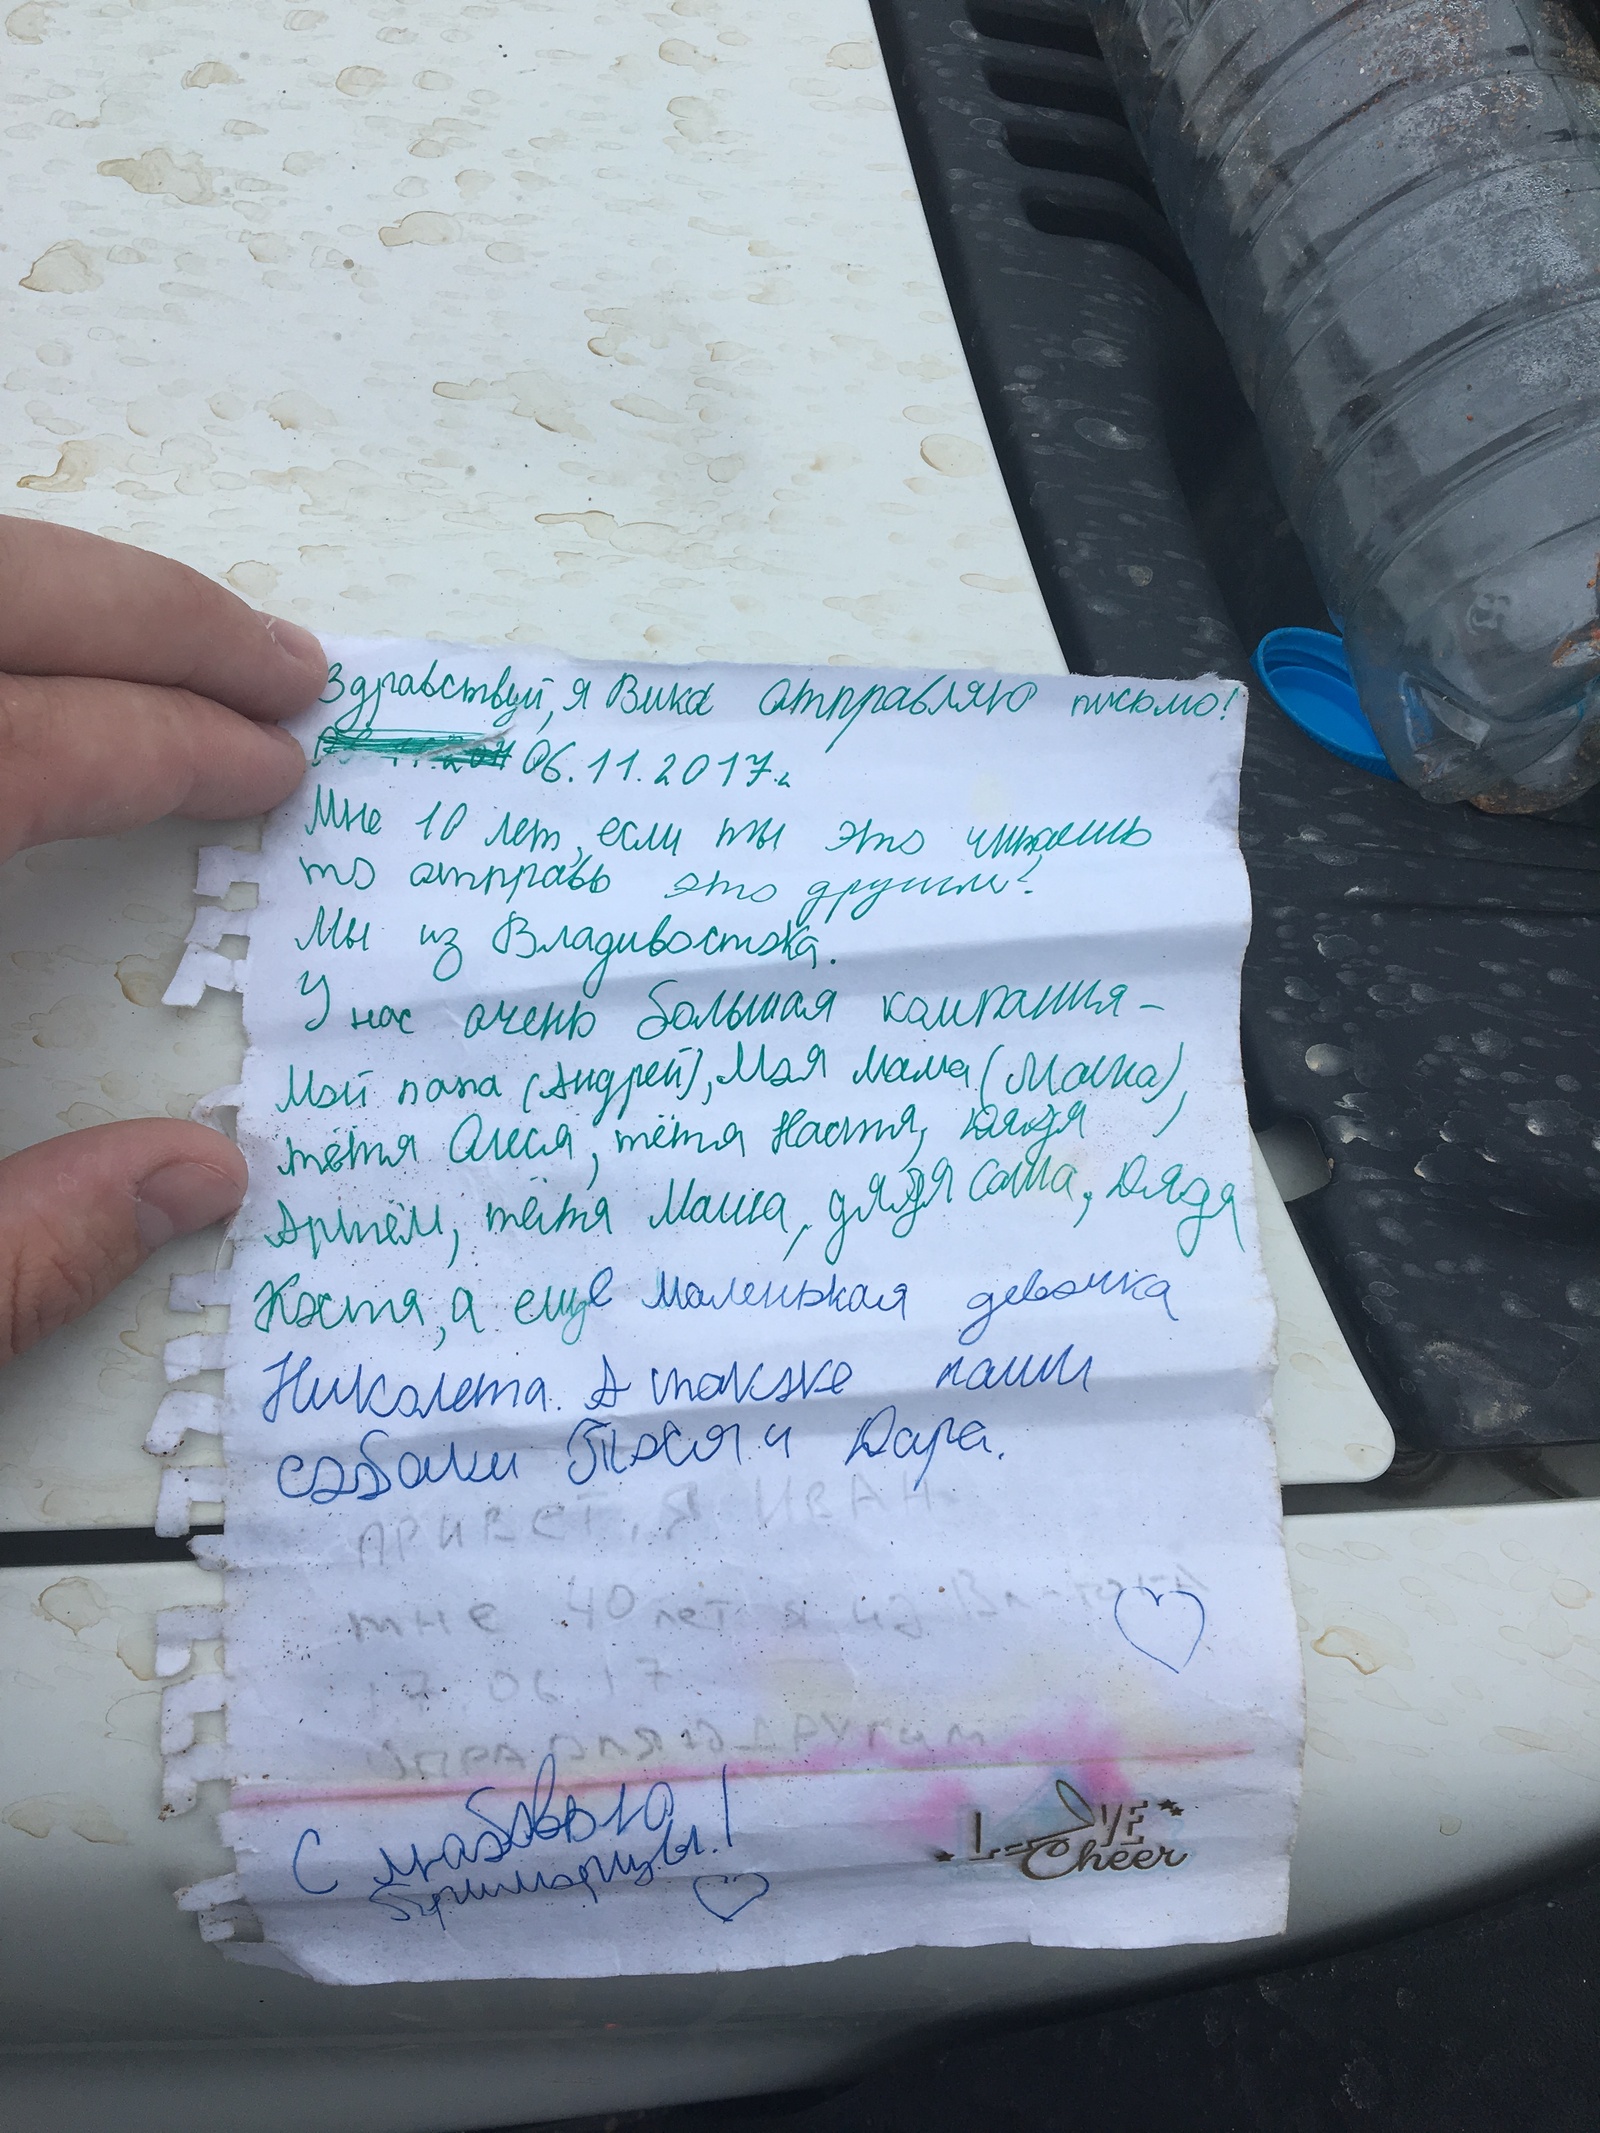 Здравствуй, я Вика отправляю письмо!
06.11.2017г.
Мне 10 лет, если ты это читаешь
то отправь это другим!
Мы из Владивостока.
У нас очень большая компания -
Мой папа (Андрей), Моя мама (Маша),
тётя Олеся, тётя Настя, Дядя
Артём, тётя Маша, дядя Саша, Дядя
Костя, а еще маленькая девочка
Николета. А также наши
собаки Тося и Дара.
ПРИВЕТ, Я ИВАН.
МНЕ 40 лет я из
17 06 17
ДРУГИМ
С любовью
приморцы!
LOVE
Cheer